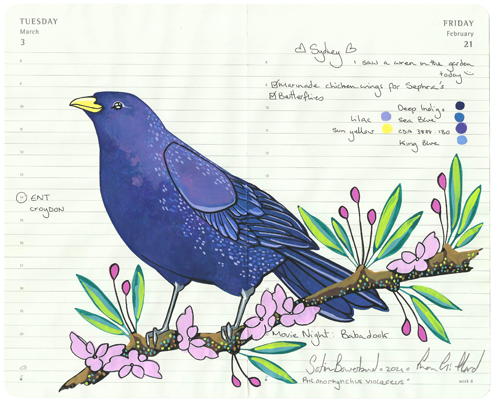 TUESDAY
March
3
FRIDAY
February
21
♡ Sydney ♡
I saw a wren in the garden
today
☑ Marinade chicken wings for Sephra's
☑ Butterflies
Deep Indigo
lilac
Sea Blue
Sun yellow
King Blue
ENT
croydon
Movie Night: Babadook
Satin Bowerbird · 2021 ·
week 8